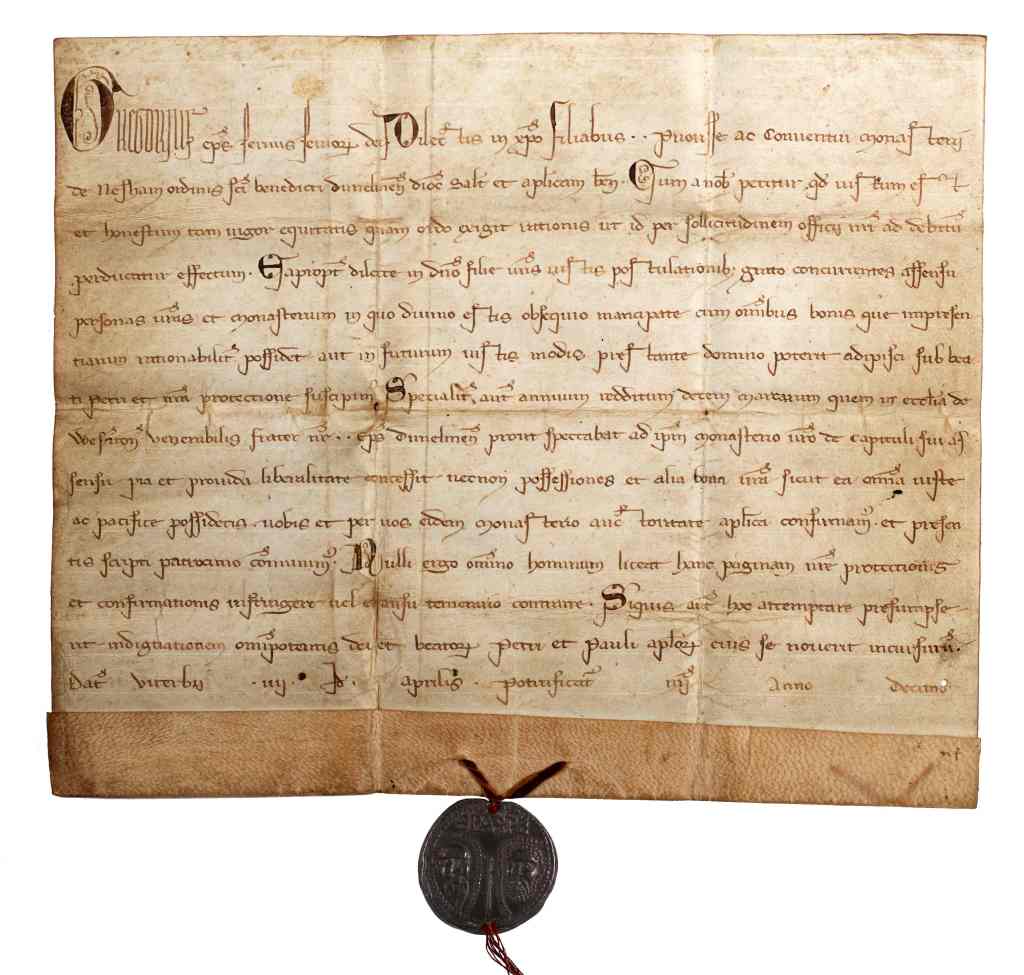 Gregorius ep̄s servus servor̄ dei Dilect̄is in xp̄o filiabus . . Priorisse ac Conventui Monasterii
de Nesham ordinis sc̄i benedicti dunelmen̄ dioc̄ Salt̄ et aplicam ben̄. Cum a nob̄ petitur qd̄ iustum est
et honestum tam vigor equitatis quam ordo exigit rationis ut id per sollicitudinem officii nr̄i ad debitū
perducatur effectum. Eapropt̄ dilecte in dn̄o filie vr̄is iustis postulationib; grato concurrentes assensu
personas vr̄as et Monasterium in quo divino estis obsequio mancipate cum om̄ibus bonis que impresen
tiarum rationabilit̄ possidet aut in futurum iustis modis prestante domino poterit adipisci sub bea
ti Petri et nr̄a protectione suscipim̄. Specialit̄ aut̄ annuum redditum decem marcarum quem in ecclia de
venerabilis frater nr̄ . . ep̄s Dunelmen̄ prout spectabat ad ip̄m Monasterio vr̄o de Capituli sui as
sensu pia et provida liberalitate concessit necnon possessiones et alia bona vr̄a sicut ea om̄ia iuste
ac pacifice possidetis. vobis et per vos eidem Monasterio auct̄oritate aplica confirmam̄. et presen
tis scripti patrocinio com̄unim̄. Nulli ergo om̄ino hominum liceat hanc paginam nr̄e protectionis
et confirmationis infringere vel ei ausu temerario contraire. Siquis aut̄ hoc attemptare presumpse
rit indignationem om̄ipotentis dei et beator̄ Petri et Pauli aplor̄ eius se noverit incursur̄.
Dat̄ viterbii . iiii. Id̄. aprilis. Pontificat̄ nr̄i Anno Decimo
PASPE